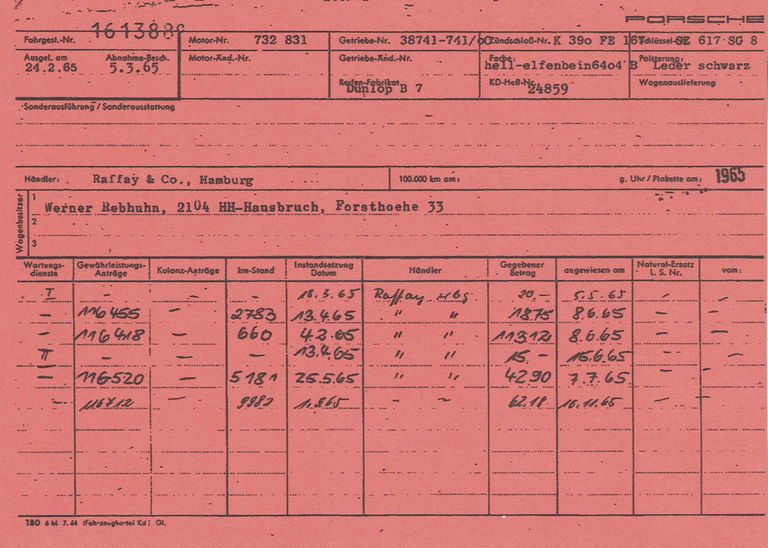 PORSCHE
Fahrgest.-Nr. Motor-Nr. 732 831 Getriebe-Nr. 38741-741/ Zündschloß-Nr. K 39o FE Schlüssel-Nr. 617 SG 8
Ausgel. am 24.2.65 Abnahme-Besch. 5.3.65 Motor-Änd.-Nr. Getriebe-Änd.-Nr. Farbe: hell-elfenbein64o4 B Polsterung: Leder schwarz
Reifen-Fabrikat Dunlop B 7 KD-Heft-Nr. 24859 Wagenauslieferung
Sonderausführung / Sonderausstattung
Händler: Raffay & Co., Hamburg 100.000 km am: g. Uhr / Plakette am: 1965
Wagenbesitzer
1 Werner Rebhuhn, 2104 HH-Hausbruch, Forsthoehe 33
2
3
Wartungs-dienste Gewährleistungs-Anträge Kulanz-Anträge km-Stand Instandsetzung Datum Händler Gegebener Betrag angewiesen am Natural-Ersatz L. S. Nr. vom:
I – – – 18.3.65 Raffay Hbg 20,– 5.5.65 – –
– 116455 – 2783 13.4.65 " " 1875 8.6.65 – –
– 116418 – 660 4.2.65 " " 11312 8.6.65 – –
II – – – 13.4.65 " " 15,– 15.6.65 – –
– 116520 – 5181 25.5.65 " " 4290 7.7.65 – –
– 116712 – 9982 " " 62.18 16.11.65 – –
180 6 M 7. 64 Fahrzeugkartei Kd Gl.